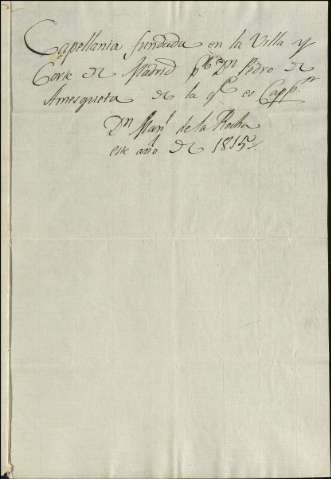 Capellania fundada en la Villa y
Corte de Madrid pr. Dn. Pedro de
Amesqueta de la ql. es Cappn.
Dn. Manl. de la Rocha
este año de 1815